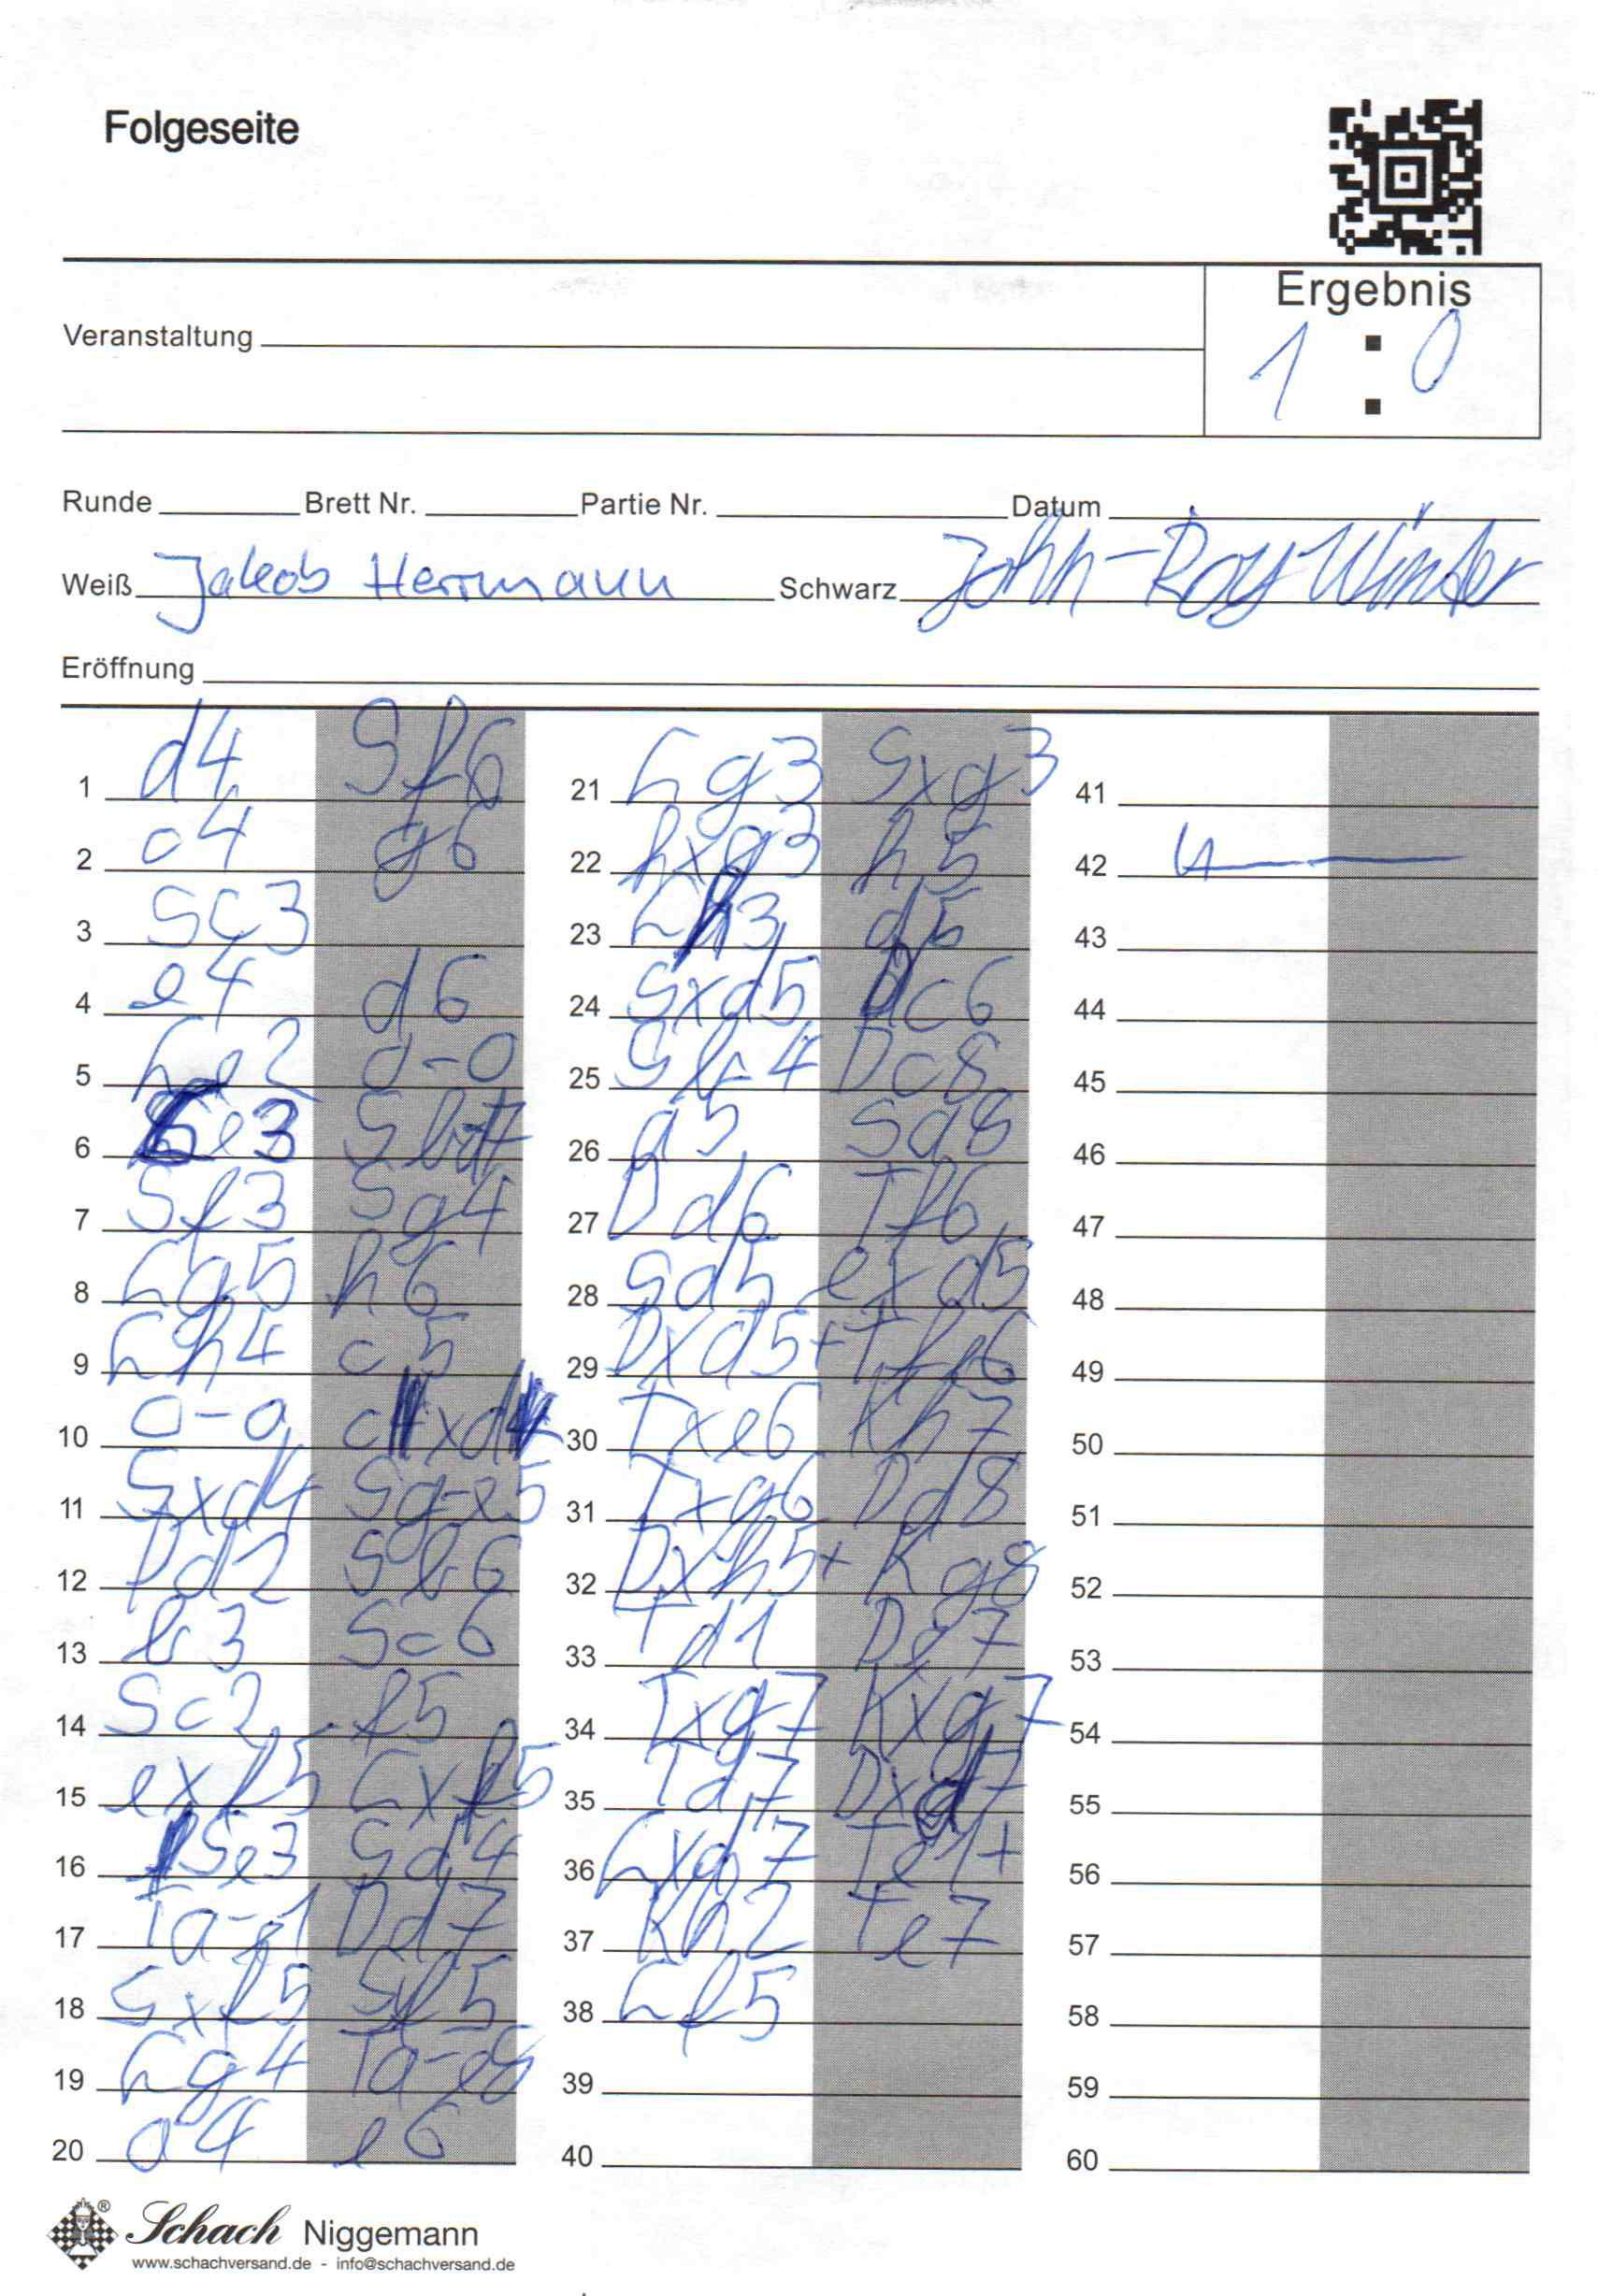 Folgeseite
Ergebnis
1 : 0
Veranstaltung
Runde Brett Nr. Partie Nr. Datum
Weiß Jakob Herrmann Schwarz John-Roy Winter
Eröffnung
1 d4 Sf6
2 c4 g6
3 Sc3
4 e4 d6
5 Le2 0-0
6 Le3 Sbd7
7 Sf3 Sg4
8 Lg5 h6
9 Lh4 c5
10 0-0 cxd4
11 Sxd4 Sg-e5
12 Dd2 Sb6
13 b3 Sc6
14 Sc2 f5
15 exf5 Lxf5
16 Se3 Sd4
17 Ta-e1 Dd7
18 Sxf5 Sf5
19 Lg4 Ta-e8
20 a4 e6
21 Lg3 Sxg3
22 hxg3 h5
23 Lh3 d5
24 Sxd5 Dc6
25 Sb4 Dc8
26 a5 Sa8
27 Dd6 Tf6
28 Sd5 exd5
29 Dxd5+ Tfe6
30 Txe6 Kh7
31 Txg6 Dd8
32 Dxh5+ Kg8
33 Td1 De7
34 Txg7 Kxg7
35 Td7 Dxd7
36 Lxd7 Te1+
37 Kh2 Te7
38 Lf5
39
40
41
42
43
44
45
46
47
48
49
50
51
52
53
54
55
56
57
58
59
60
Schach Niggemann
www.schachversand.de - info@schachversand.de